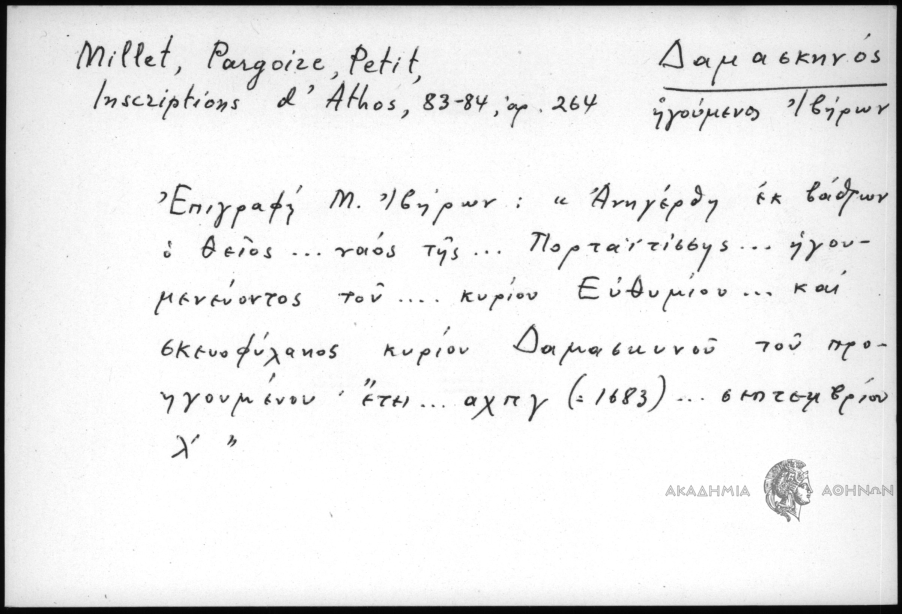 Millet, Pargoire, Petit,
Inscriptions d'Athos, 83-84, ἀρ. 264
Δαμασκηνός
ἡγούμενος Ἰβήρων
Ἐπιγραφή Μ. Ἰβήρων : « Ἀνηγέρθη ἐκ βάθρων
ὁ θεῖος ... ναός τῆς ... Πορταϊτίσσης ... ἡγου-
μενεύοντος τοῦ .... κυρίου Εὐθυμίου ... καί
σκευοφύλακος κυρίου Δαμασκυνοῦ τοῦ προ-
ηγουμένου · ἔτει ... αχπγ (= 1683) ... σεπτεμβρίου
λ' »
ΑΚΑΔΗΜΙΑ ΑΘΗΝΩΝ